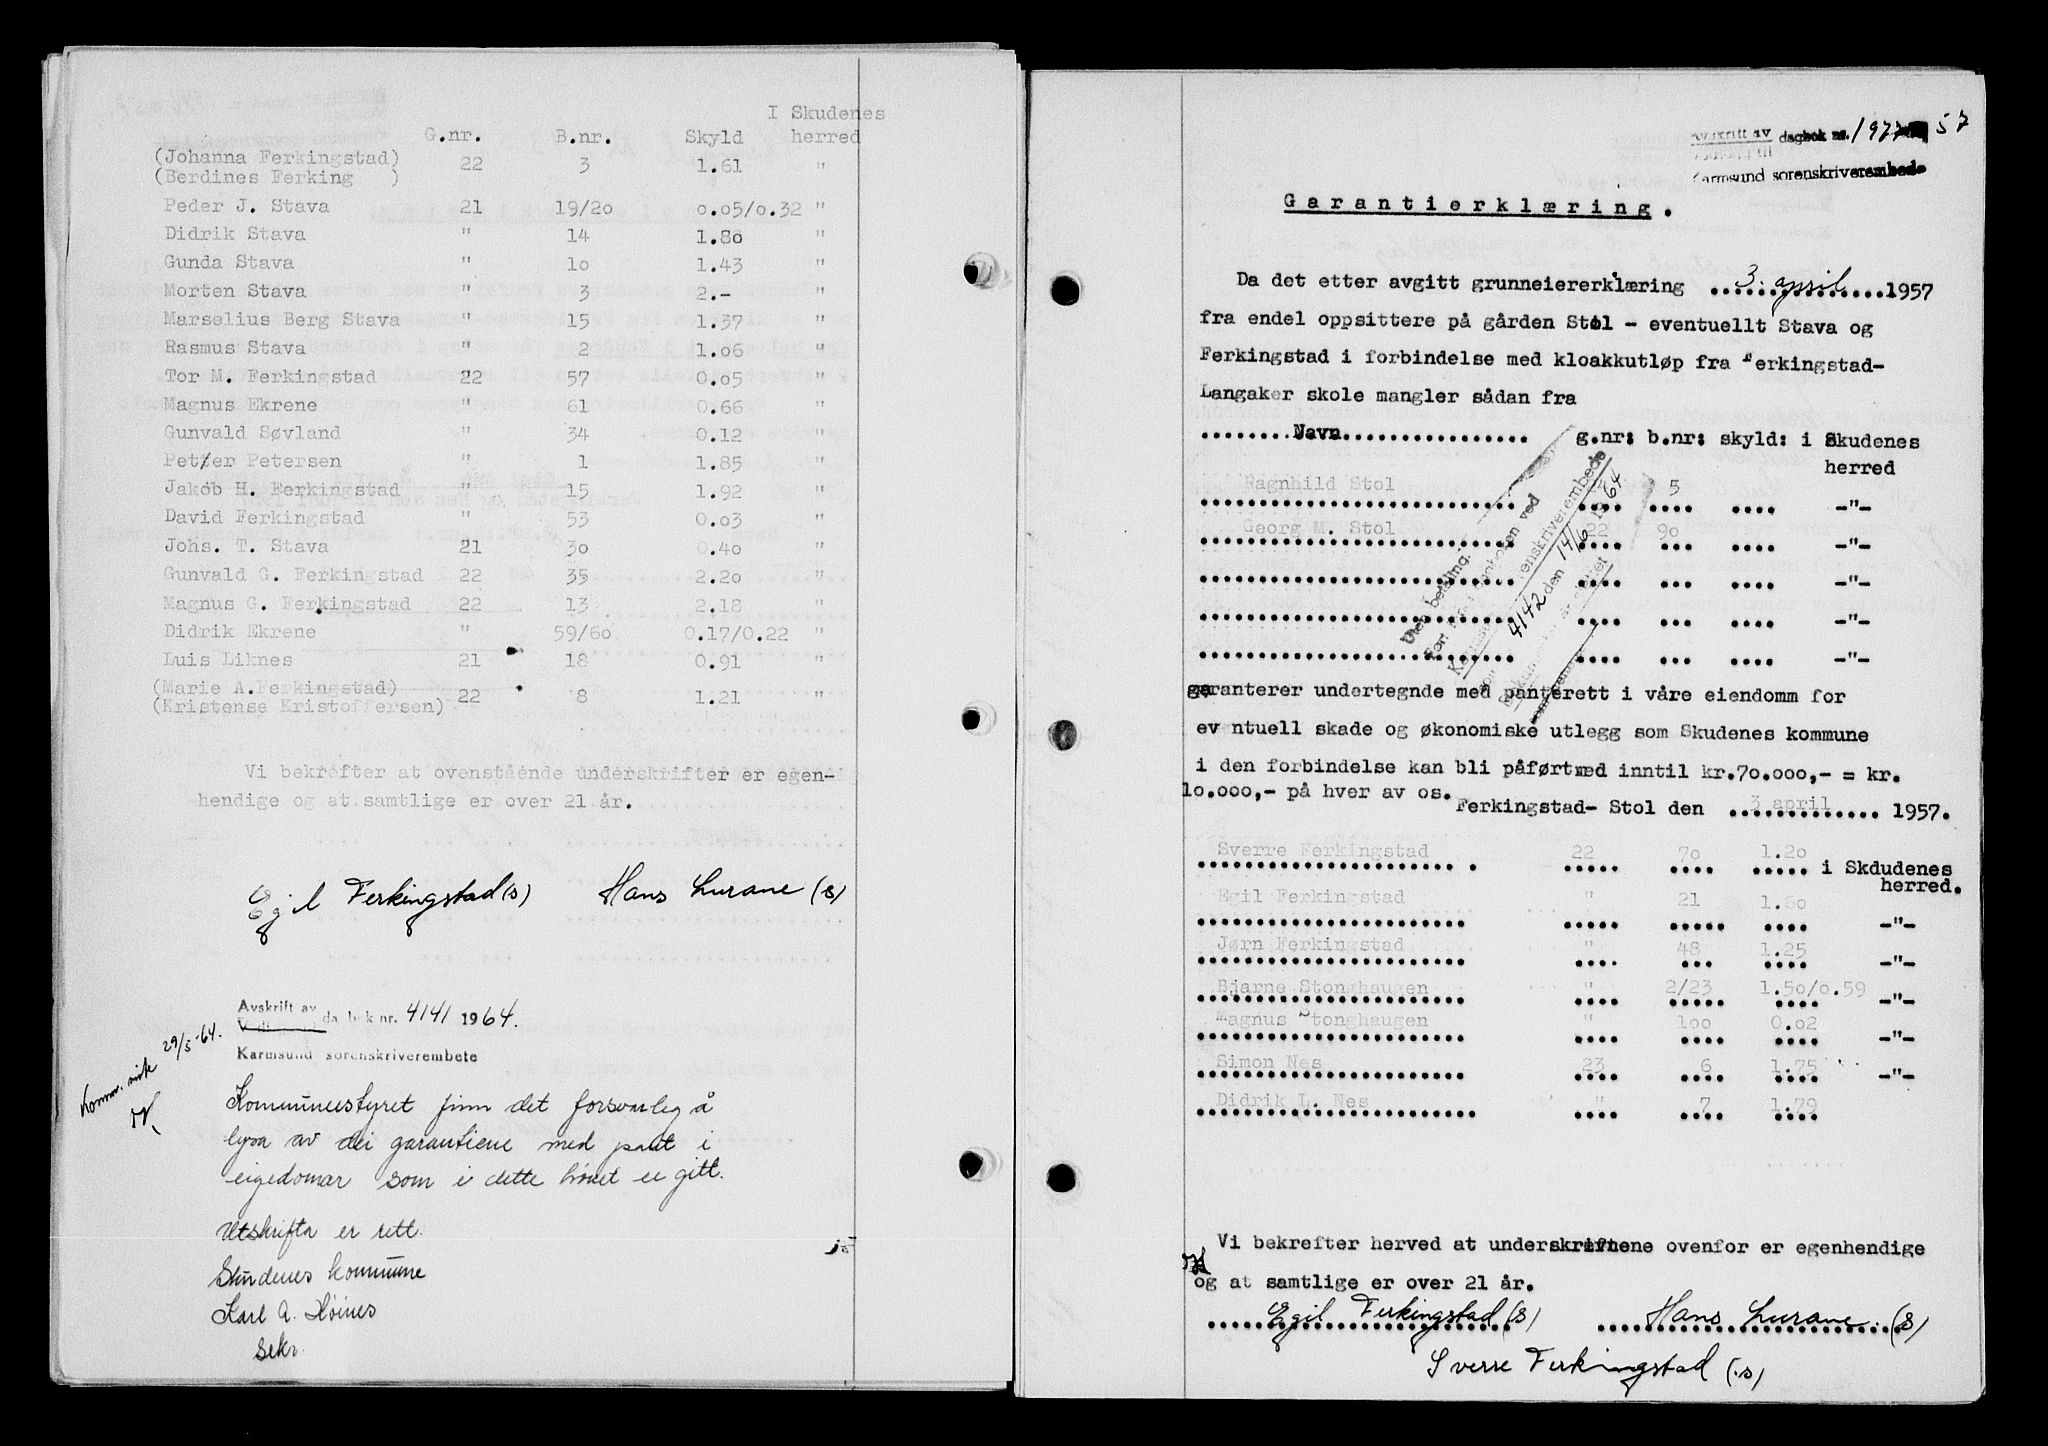 I Skudenes
G.nr. B.nr. Skyld herred
(Johanna Ferkingstad) 22 3 1.61 "
(Berdines Ferking )
Peder J. Stava 21 19/20 0.05/0.32 "
Didrik Stava " 14 1.80 "
Gunda Stava " 10 1.43 "
Morten Stava " 3 2.- "
Marselius Berg Stava " 15 1.37 "
Rasmus Stava " 2 1.06 "
Tor M. Ferkingstad 22 57 0.05 "
Magnus Ekrene " 61 0.66 "
Gunvald Søvland " 34 0.12 "
Petter Petersen " 1 1.85 "
Jakob H. Ferkingstad " 15 1.92 "
David Ferkingstad " 53 0.03 "
Johs. T. Stava 21 30 0.40 "
Gunvald G. Ferkingstad 22 35 2.20 "
Magnus G. Ferkingstad 22 13 2.18 "
Didrik Ekrene " 59/60 0.17/0.22 "
Luis Liknes 21 18 0.91 "
(Marie A.Ferkingstad) 22 8 1.21 "
(Kristense Kristoffersen)
Vi bekrefter at ovenstående underskrifter er egen-
hendige og at samtlige er over 21 år.
Egil Ferkingstad (s) Hans Lurane (s)
Avskrift av
dagbok nr. 4141 1964.
Karmsund sorenskriverembete
29/5-64.
Kommunestyret finn det forsvarleg å
lysa av dei garantiene med pant i
eigedomar som i dette høvet er gitt.
Utskrifta er rett.
Skudenes kommune
Karl A. Høines
sekr.
Avskrift av dagbok nr. 1977 57
Karmsund sorenskriverembede
Garantierklæring.
Da det etter avgitt grunneiererklæring ..3. april....1957
fra endel oppsittere på gården Stol - eventuellt Stava og
Ferkingstad i forbindelse med kloakkutløp fra Ferkingstad-
Langaker skole mangler sådan fra
........Navn................ g.nr: b.nr: skyld: i Skudenes
herred
Ragnhild Stol 5 -"-
Georg M. Stol 22 90 -"-
-"-
-"-
-"-
Uten betaling.
ført inn i dagboken ved
Karmsund sorenskriverembede
4142 den 14/6 1964
garanterer undertegnde med panterett i våre eiendomm for
ev ntuell skade og økonomiske utlegg som Skudenes kommune
i den forbindelse kan bli påført med inntil kr.70.000,- = kr.
10.000,- på hver av os.
Ferkingstad- Stol den 3 april 1957.
Sverre Ferkingstad 22 70 1.20 i Skdudenes
herred.
Egil Ferkingstad " 21 1.60 -"-
Jørn Ferkingstad " 48 1.25 -"-
Bjarne Stonghaugen " 2/23 1.50/0.59 -"-
Magnus Stonghaugen " 100 0.02 -"-
Simon Nes 23 6 1.75 -"-
Didrik L. Nes " 7 1.79
Vi bekrefter herved at underskriftene ovenfor er egenhendige
og at samtlige er over 21 år.
Egil Ferkingstad (s) Hans Lurane (s)
Sverre Ferkingstad (s)